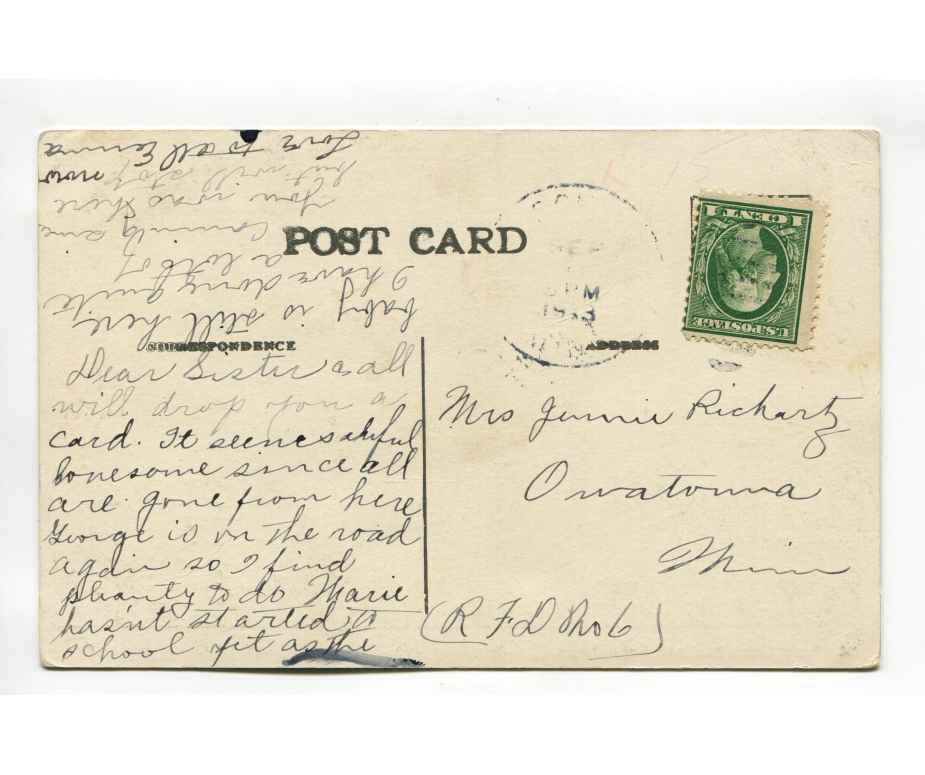 POST CARD
CORRESPONDENCE
ADDRESS
1 CENT 1
U.S. POSTAGE
PM
Dear Sister & all
will drop you a
card. It seemes awful
lonesome since all
are gone from here
George is on the road
again so I find
plianty to do Marie
hasn't started to
school yet as the
baby is still here.
I have dong quite
a lot of
Canning ane
You was there
but will stop now
Love to all Emma
Mrs Jennie Richartz
Owatonna
Minn
(R F D No 6)